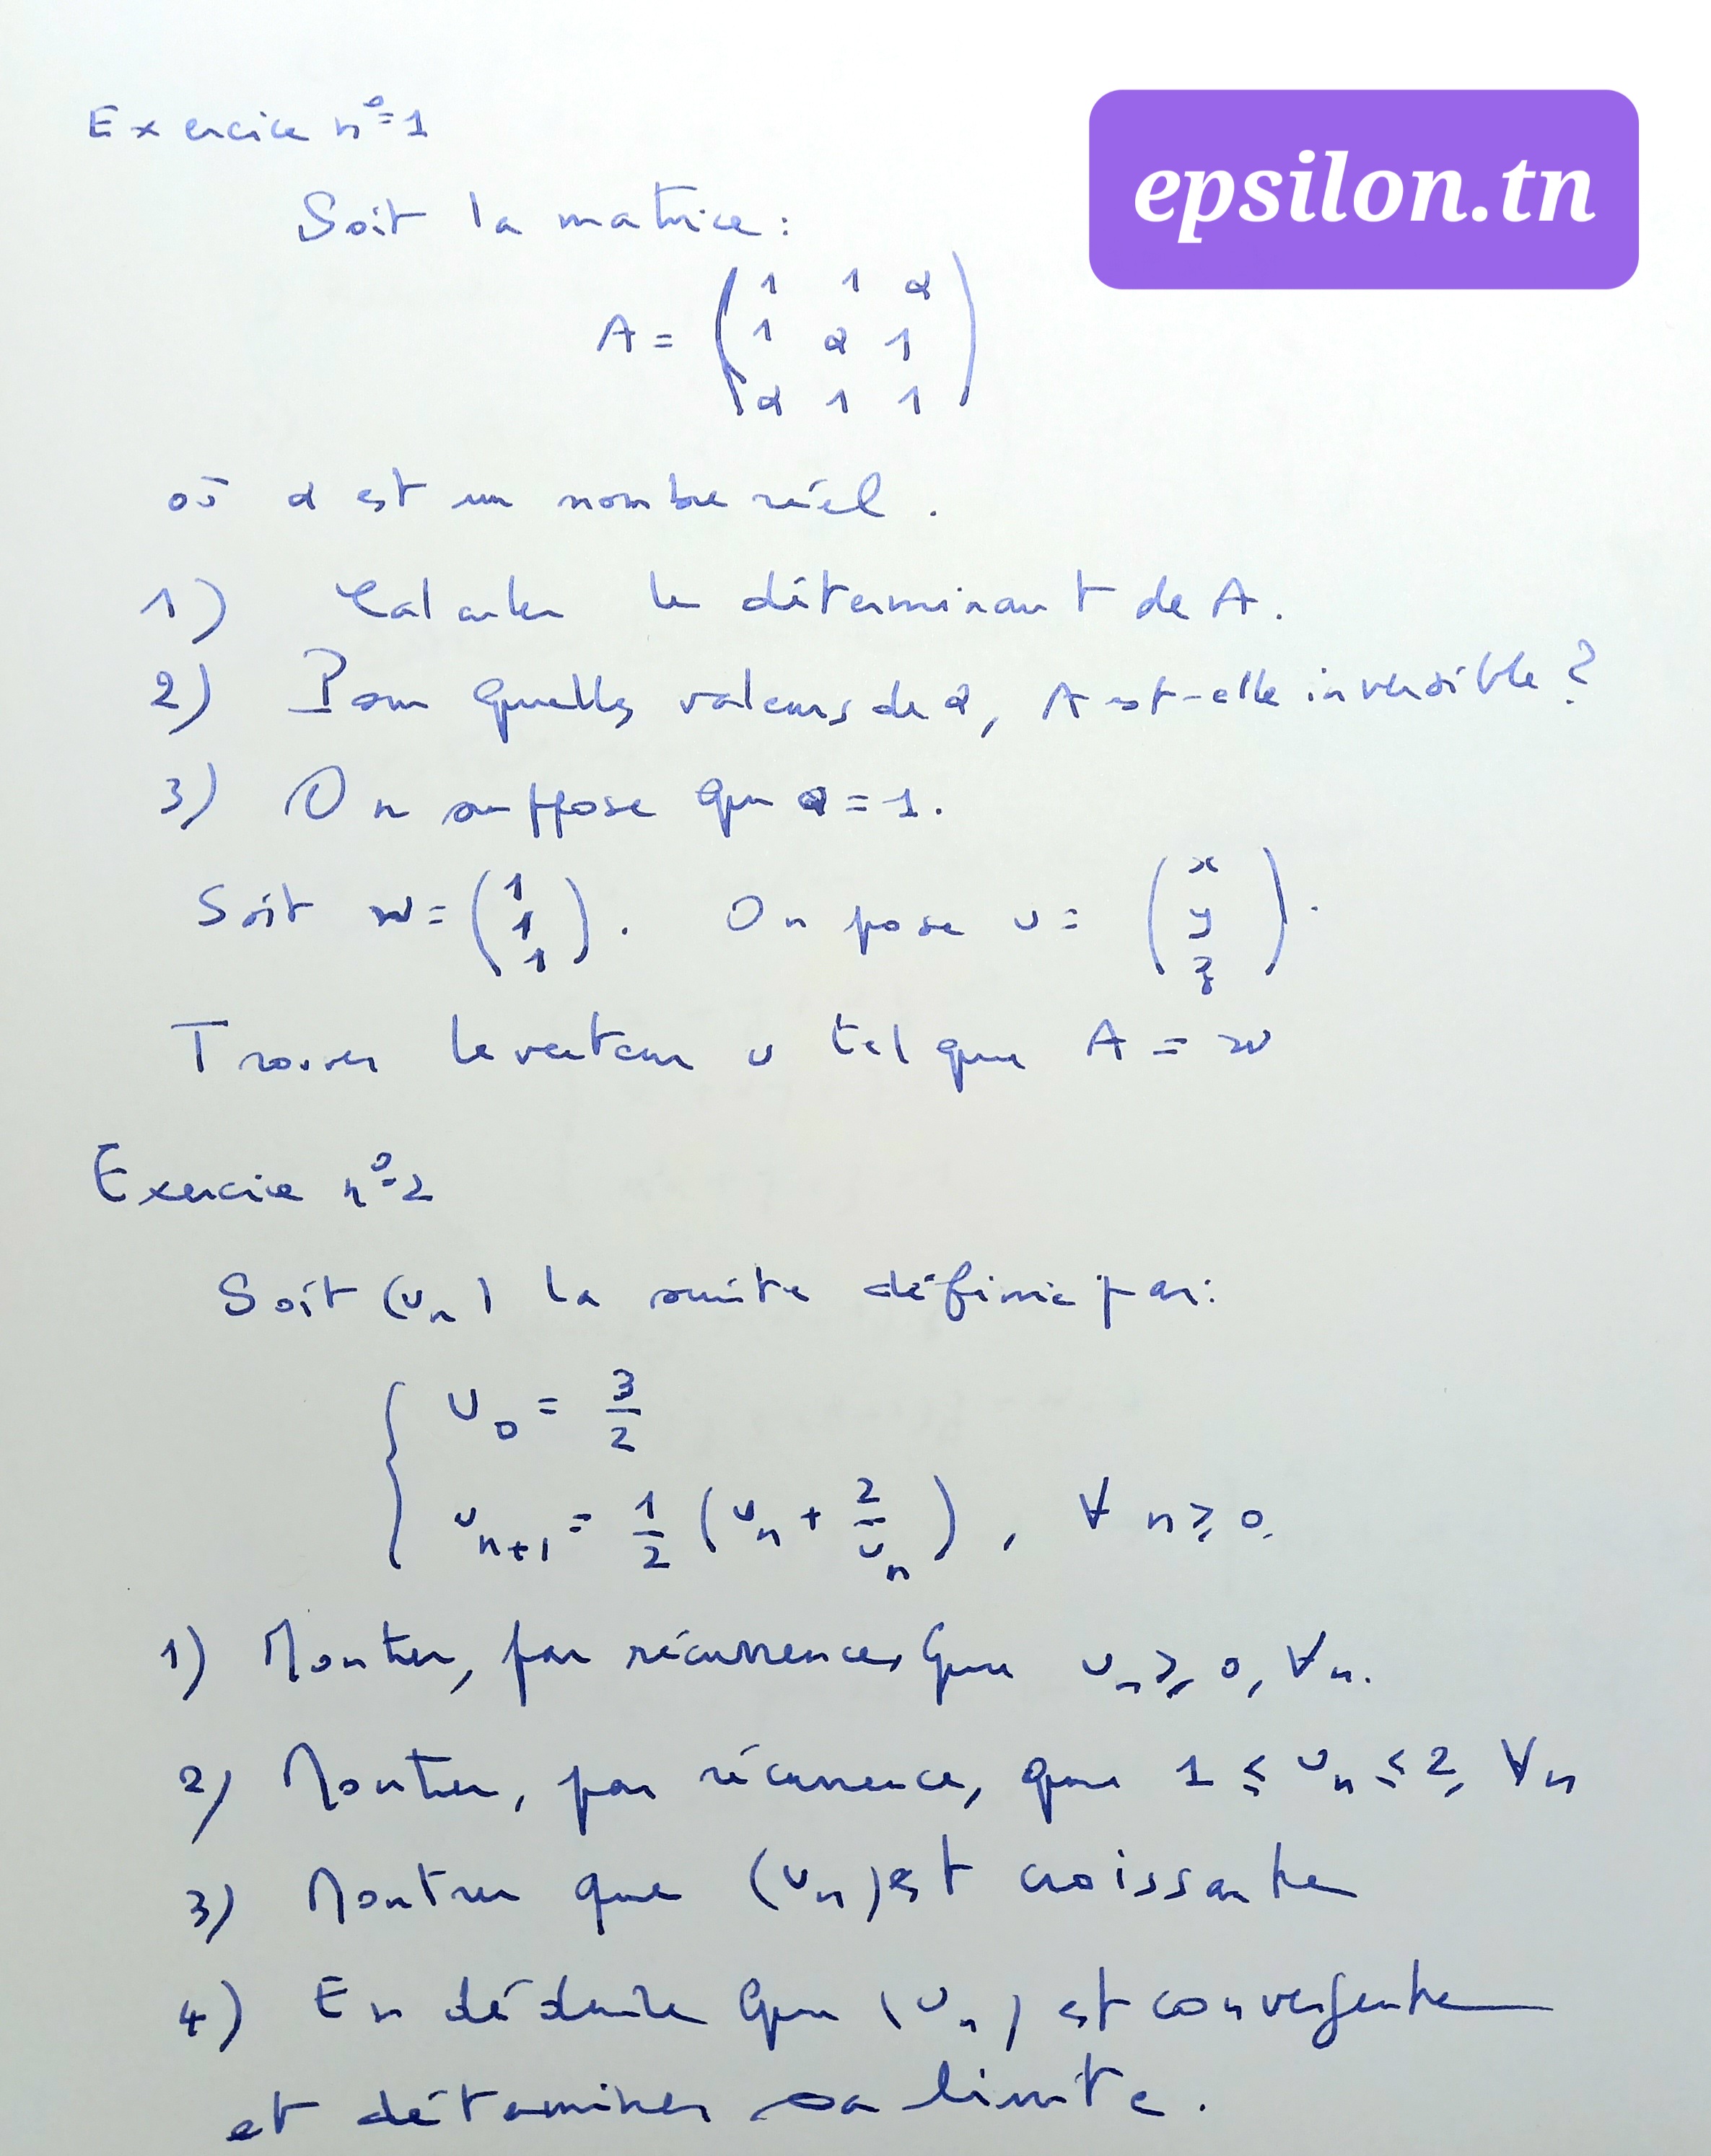 Exercice n°=1
epsilon.tn
Soit la matrice :
A = ( 1 1 α
1 α 1
α 1 1 )
où α est un nombre réel.
1) Calculer le déterminant de A.
2) Pour quelles valeurs de α, A est-elle inversible ?
3) On suppose que α = 1.
Soit w = ( 1 1 1 ). On pose u = ( x y z ).
Trouver le vecteur u tel que A = w
Exercice n°=2
Soit (un) la suite définie par :
U0 = 3/2
un+1 = 1/2 (un + 2/un), ∀ n ≥ 0.
1) Montrer, par récurrence, que un ≥ 0, ∀n.
2) Montrer, par récurrence, que 1 ≤ un ≤ 2, ∀n
3) Montrer que (un) est croissante
4) En déduire que (un) est convergente
et déterminer sa limite.